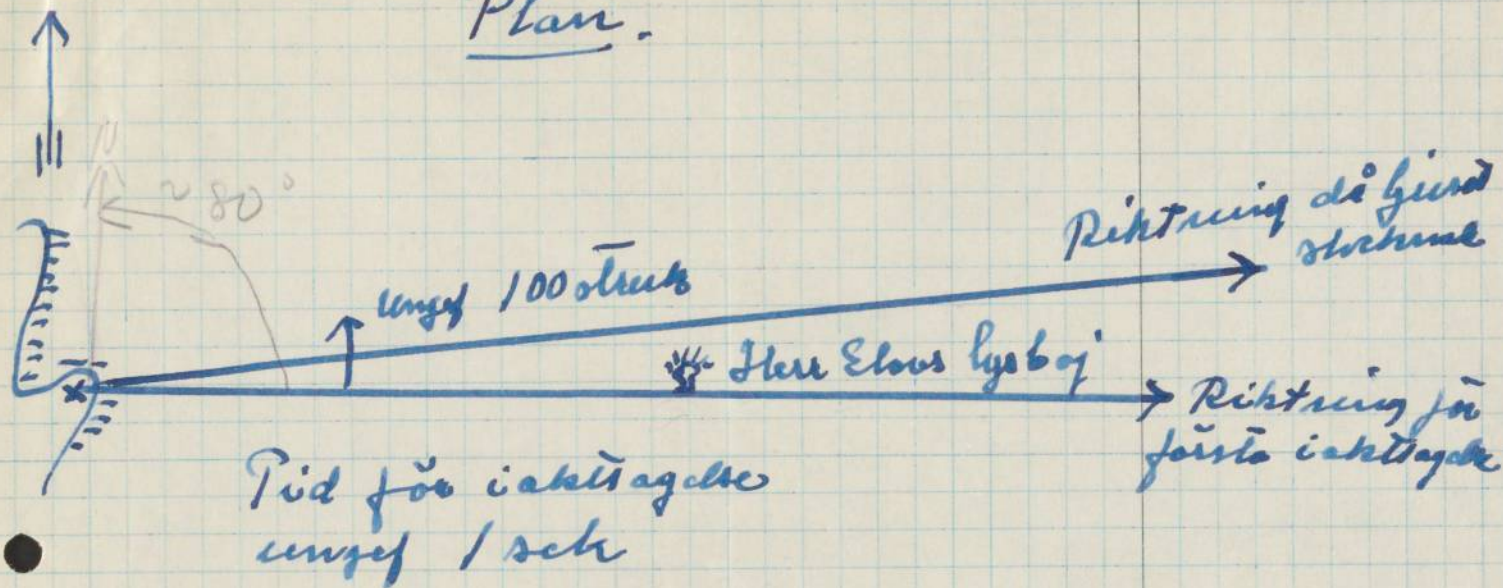 Plan.
N
~ 80°
Riktning då ljuset
slocknade
ungef 100 streck
Herr Elovs lysboj
Riktning för
första iakttagelse
Tid för iakttagelse
ungef 1 sek